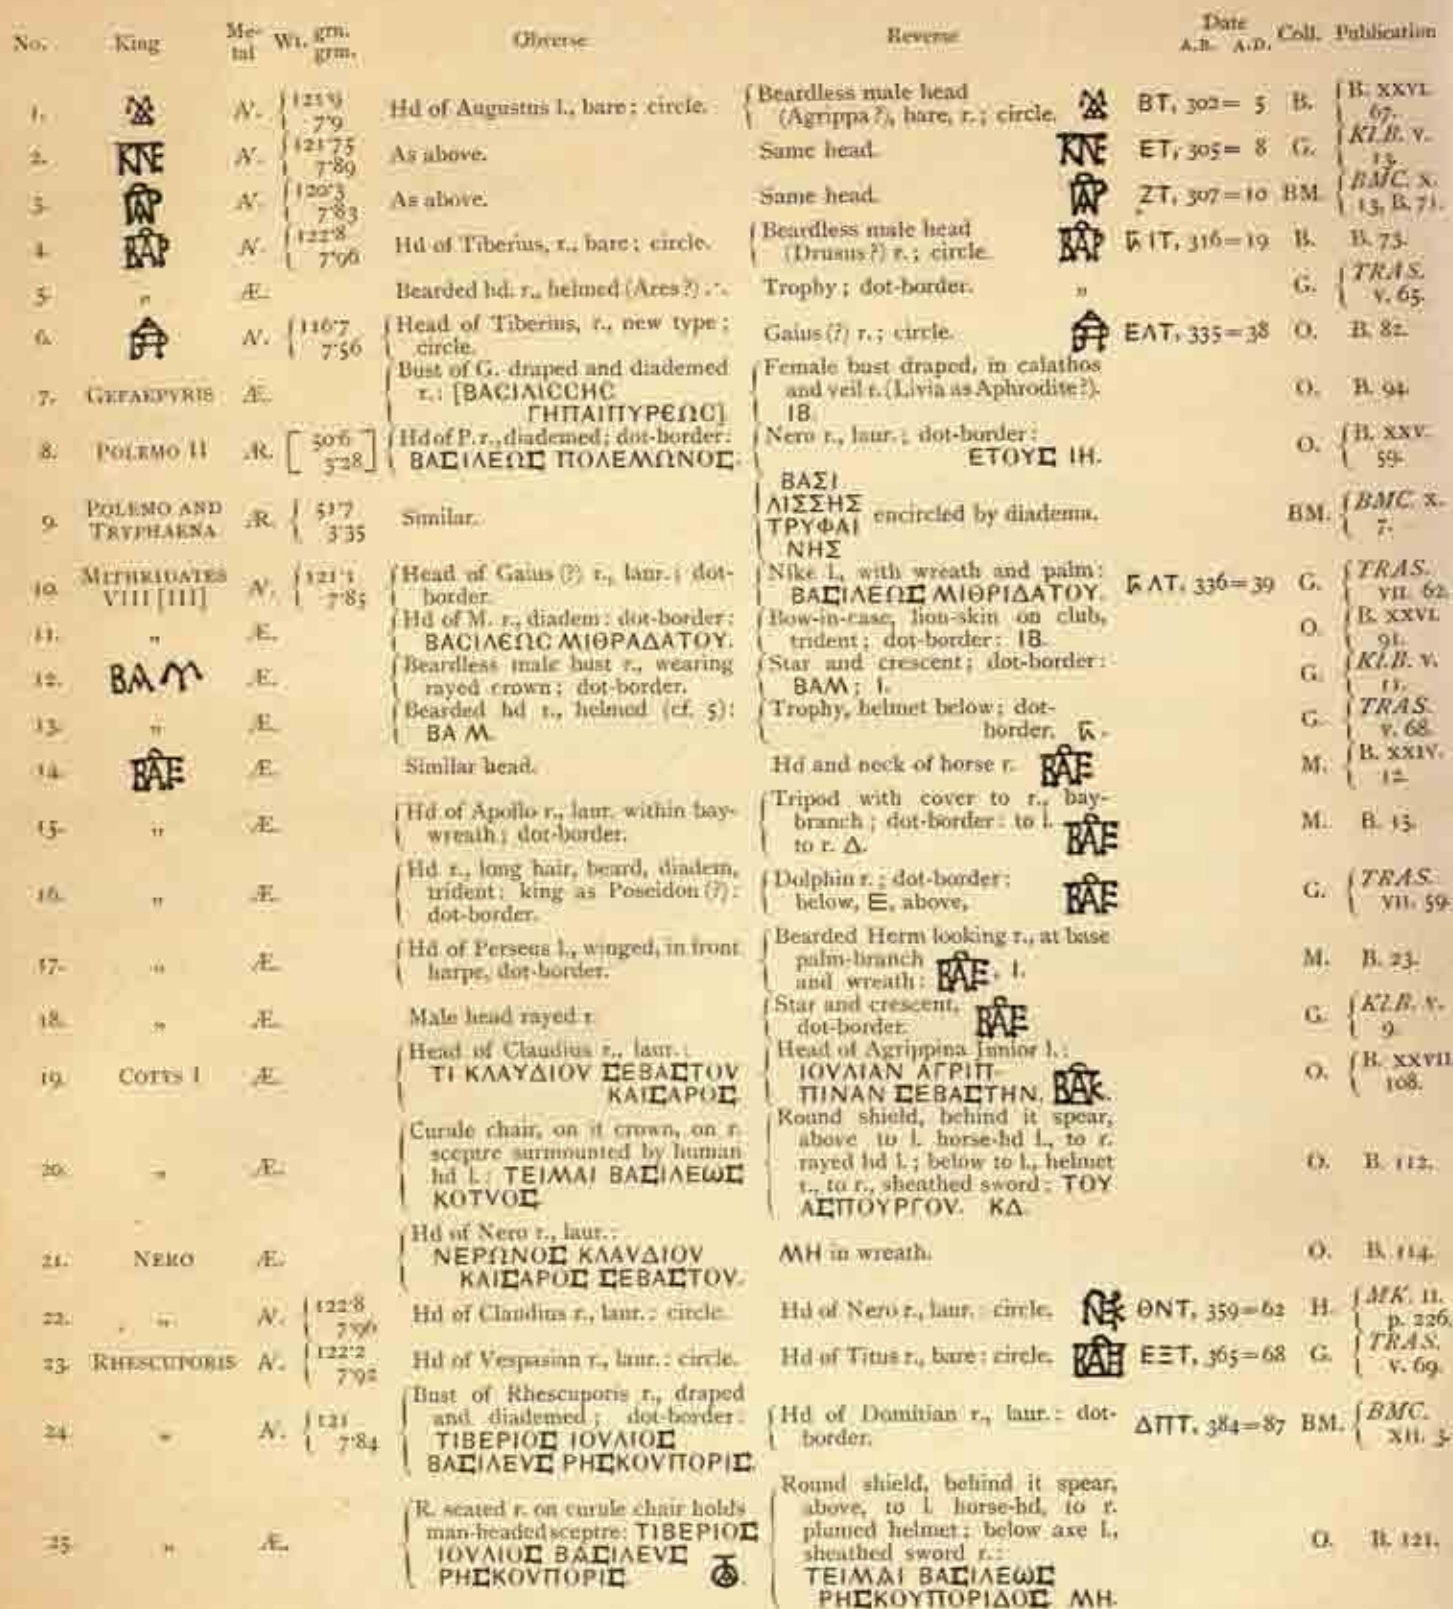 No. King Metal Wt. grn. grm. Obverse Reverse Date A.B. A.D. Coll. Publication
1. N. 7·9 Hd of Augustus l., bare; circle. Beardless male head (Agrippa?), bare, r.; circle. ΒΤ, 302= 5 B. B. XXVI. 67.
2. ΚΝΕ N. 121·75 7·89 As above. Same head. ΚΝΕ ΕΤ, 305= 8 G. KLB. v. 13.
3. N. 120·3 7·83 As above. Same head. ΖΤ, 307=10 BM. BMC. x. 13, B. 71.
4. ΒΑΡ N. 122·8 7·96 Hd of Tiberius, r., bare; circle. Beardless male head (Drusus?) r.; circle. ΒΑΡ ϛΙΤ, 316=19 B. B. 73.
5. „ Æ. Bearded hd. r., helmed (Ares?) .·. Trophy; dot-border. „ G. TRAS. v. 65.
6. N. 116·7 7·56 Head of Tiberius, r., new type; circle. Gaius (?) r.; circle. ΕΛΤ, 335=38 O. B. 82.
7. GEPAEPYRIS Æ. Bust of G. draped and diademed r.: [ΒΑCΙΛΙCCΗC ΓΗΠΑΙΠΥΡΕΩC] Female bust draped, in calathos and veil r. (Livia as Aphrodite?). ΙΒ. O. B. 94.
8. POLEMO II Æ. [50·6 3·28] Hd of P. r., diademed; dot-border: ΒΑΣΙΛΕΩΣ ΠΟΛΕΜΩΝΟΣ. Nero r., laur.; dot-border: ΕΤΟΥΣ ΙΗ. O. B. XXV. 59.
9. POLEMO AND TRYPHAENA Æ. 51·7 3·35 Similar. ΒΑΣΙ ΛΙΣΣΗΣ ΤΡΥΦΑΙ ΝΗΣ encircled by diadema. BM. BMC. x. 7.
10. MITHRIDATES VIII [III] N. 121·1 7·85 Head of Gaius (?) r., laur.; dot-border. Nike l., with wreath and palm: ΒΑΣΙΛΕΩΣ ΜΙΘΡΙΔΑΤΟΥ. ϛΛΤ, 336=39 G. TRAS. VII. 62.
11. „ Æ. Hd of M. r., diadem: dot-border: ΒΑCΙΛΕΩC ΜΙΘΡΑΔΑΤΟΥ. Bow-in-case, lion-skin on club, trident; dot-border: ΙΒ. O. B. XXVI. 91.
12. ΒΑΜ Æ. Beardless male bust r., wearing rayed crown; dot-border. Star and crescent; dot-border: ΒΑΜ; Ι. G. KLB. v. 11.
13. „ Æ. Bearded hd r., helmed (cf. 5): ΒΑ Μ. Trophy, helmet below; dot-border. ϛ. G. TRAS. v. 68.
14. ΒΑΕ Æ. Similar head. Hd and neck of horse r. ΒΑΕ M. B. XXIV. 12.
15. „ Æ. Hd of Apollo r., laur. within bay-wreath; dot-border. Tripod with cover to r., bay-branch; dot-border: to l. ΒΑΕ to r. Δ. M. B. 15.
16. „ Æ. Hd r., long hair, beard, diadem, trident: king as Poseidon (?): dot-border. Dolphin r.; dot-border: below, Ε, above, ΒΑΕ G. TRAS. VII. 59.
17. „ Æ. Hd of Perseus l., winged, in front harpe, dot-border. Bearded Herm looking r., at base palm-branch and wreath: ΒΑΕ. Ι. M. B. 23.
18. „ Æ. Male head rayed r. Star and crescent, dot-border. ΒΑΕ G. KLB. v. 9.
19. COTYS I Æ. Head of Claudius r., laur.: ΤΙ ΚΛΑΥΔΙΟΥ ΣΕΒΑΣΤΟΥ ΚΑΙΣΑΡΟΣ Head of Agrippina Junior l.: ΙΟΥΛΙΑΝ ΑΓΡΙΠ-ΠΙΝΑΝ ΣΕΒΑΣΤΗΝ. ΒΑΚ. O. B. XXVII 108.
20. „ Æ. Curule chair, on it crown, on r. sceptre surmounted by human hd l.: ΤΕΙΜΑΙ ΒΑΣΙΛΕΩΣ ΚΟΤΥΟΣ Round shield, behind it spear, above to l. horse-hd l., to r. rayed hd l.; below to l., helmet r., to r., sheathed sword: ΤΟΥ ΑΣΠΟΥΡΓΟΥ. ΚΔ. O. B. 112.
21. NERO Æ. Hd of Nero r., laur.: ΝΕΡΩΝΟΣ ΚΛΑΥΔΙΟΥ ΚΑΙΣΑΡΟΣ ΣΕΒΑΣΤΟΥ. ΜΗ in wreath. O. B. 114.
22. „ N. 122·8 7·96 Hd of Claudius r., laur.: circle. Hd of Nero r., laur. circle. ΘΝΤ, 359=62 H. MK. II. p. 226.
23. RHESCUPORIS N. 122·2 7·92 Hd of Vespasian r., laur.: circle. Hd of Titus r., bare: circle. ΕΞΤ, 365=68 G. TRAS. v. 69.
24. „ N. 121 7·84 Bust of Rhescuporis r., draped and diademed; dot-border: ΤΙΒΕΡΙΟΣ ΙΟΥΛΙΟΣ ΒΑΣΙΛΕΥΣ ΡΗΣΚΟΥΠΟΡΙΣ. Hd of Domitian r., laur.: dot-border. ΔΠΤ, 384=87 BM. BMC. XII. 3.
25 „ Æ. R. seated r. on curule chair holds man-headed sceptre: ΤΙΒΕΡΙΟΣ ΙΟΥΛΙΟΣ ΒΑΣΙΛΕΥΣ ΡΗΣΚΟΥΠΟΡΙΣ. Round shield, behind it spear, above, to l. horse-hd, to r. plumed helmet; below axe l., sheathed sword r.: ΤΕΙΜΑΙ ΒΑΣΙΛΕΩΣ ΡΗΣΚΟΥΠΟΡΙΔΟΣ ΜΗ. O. B. 121.